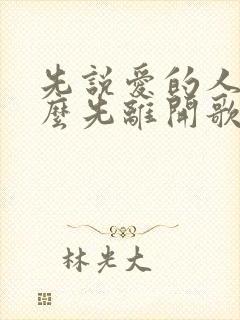 先說愛的人
麼先離開歌
林光大